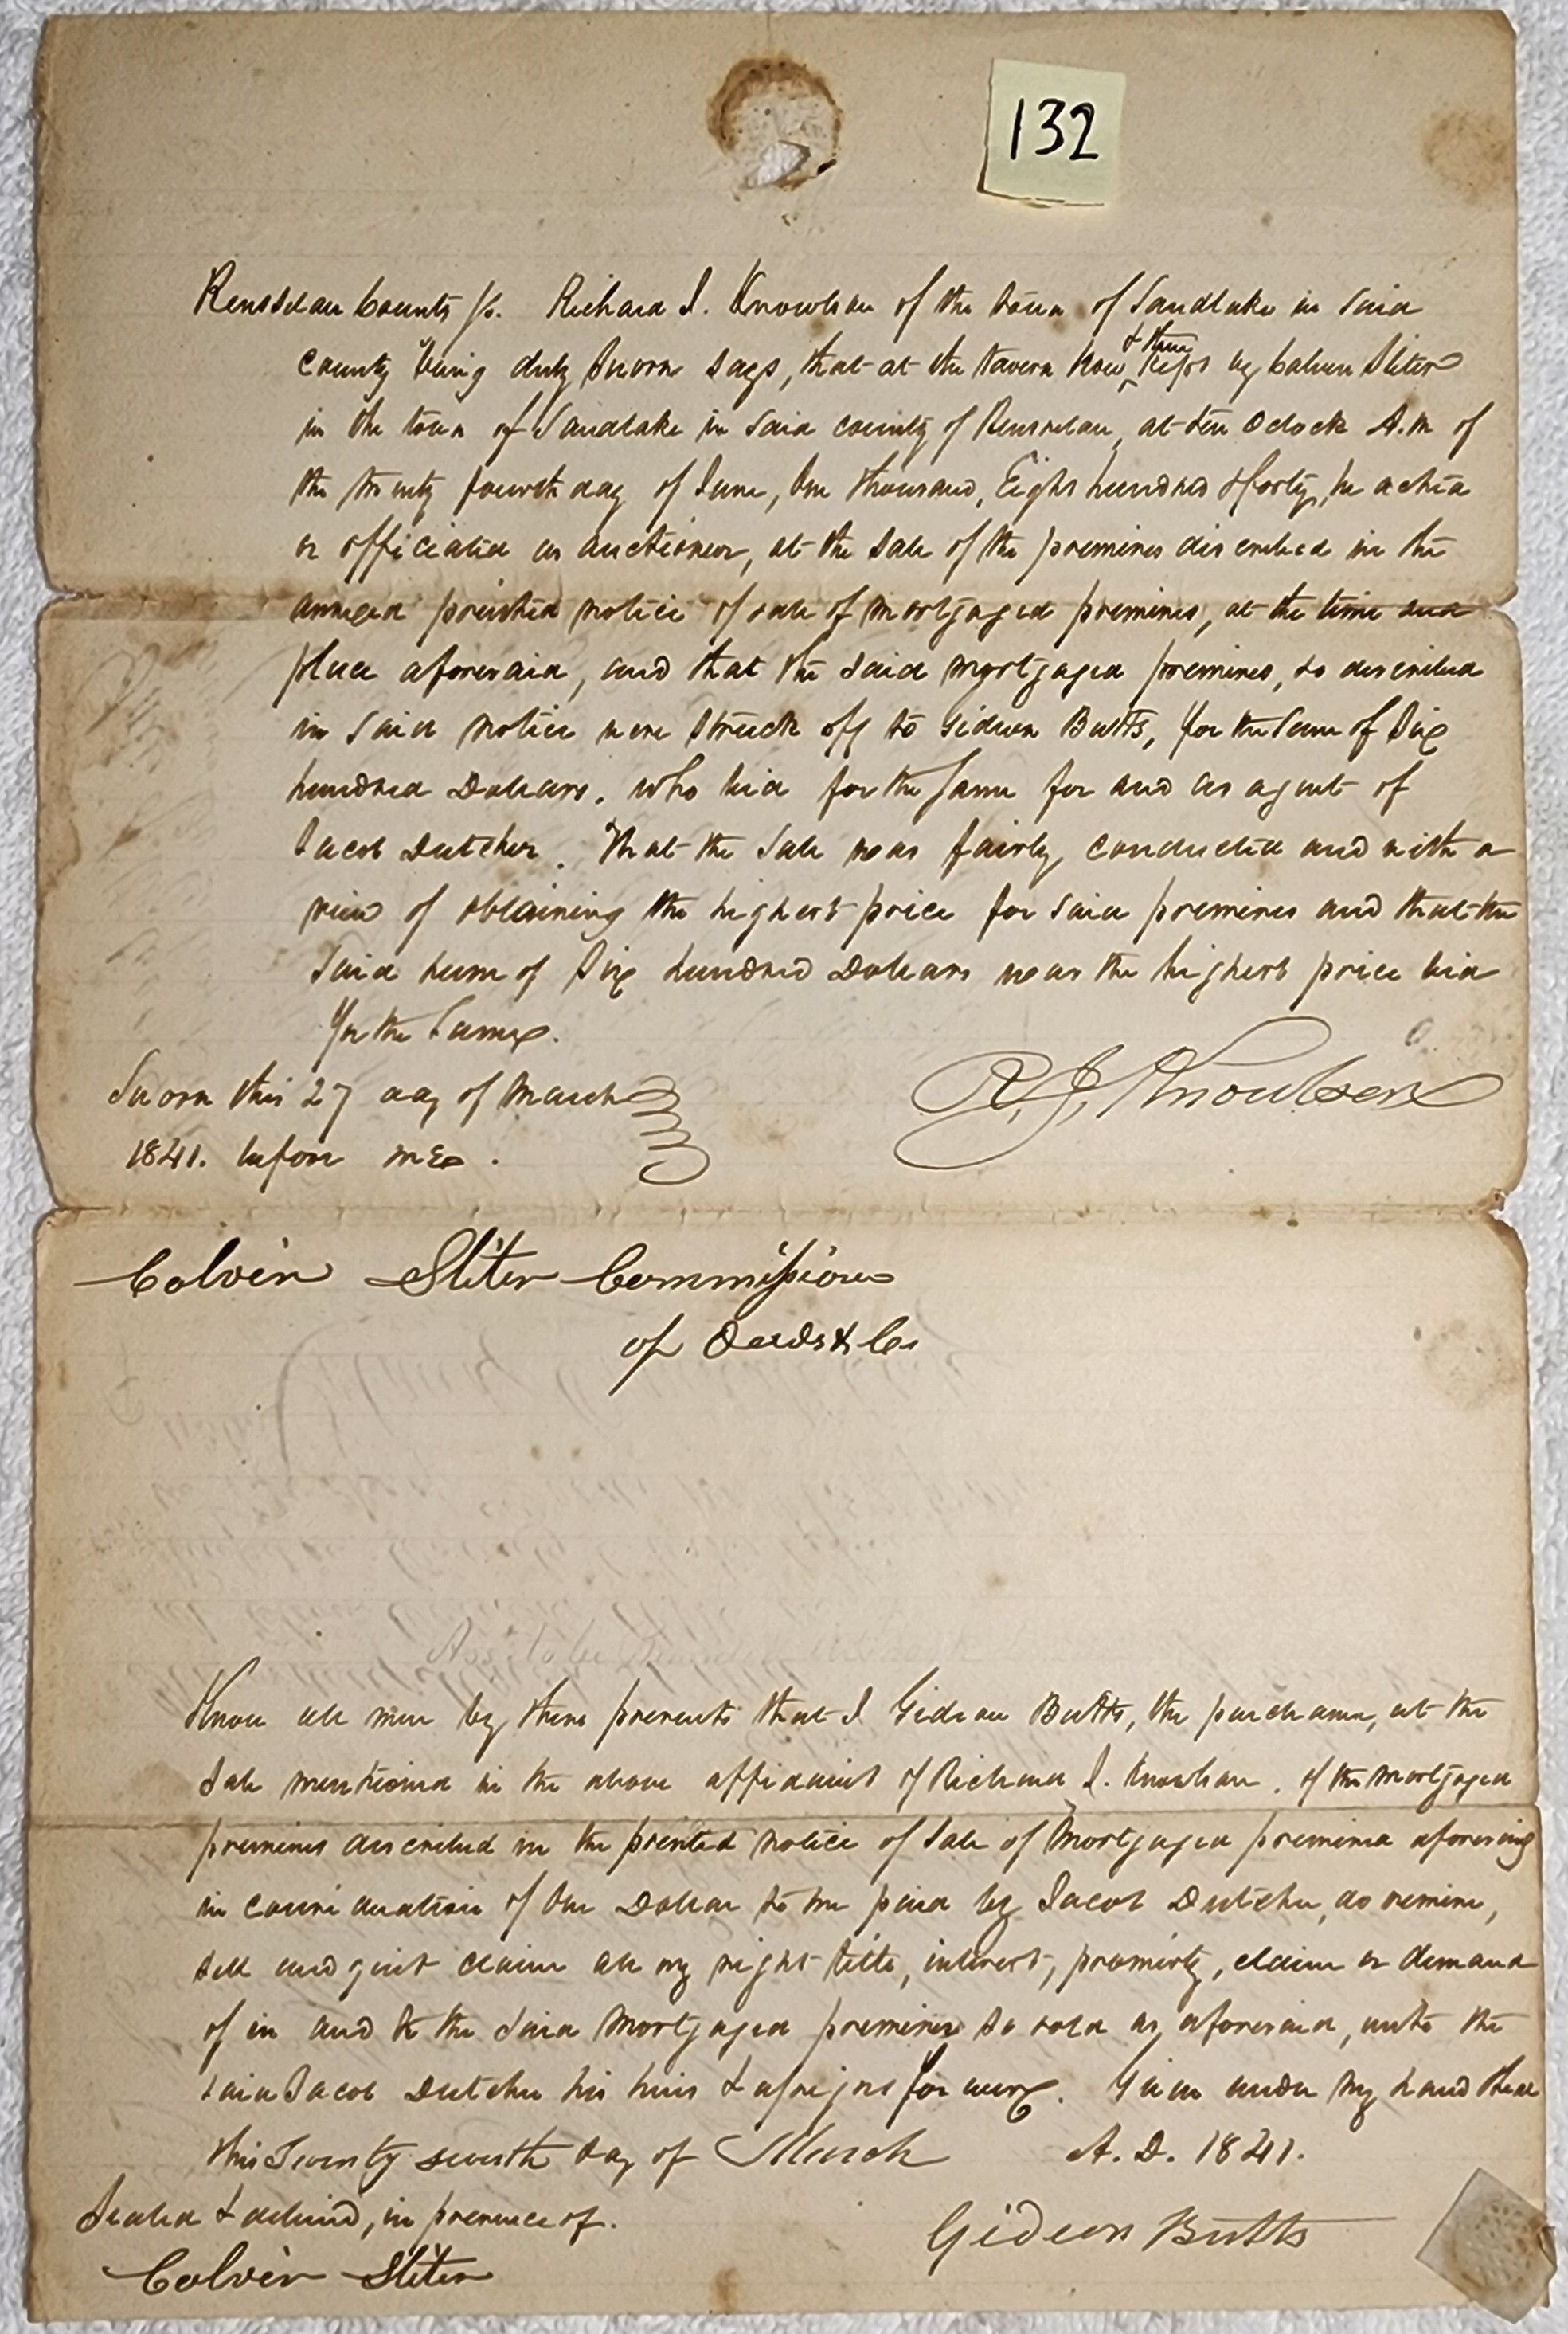 132
Rensselaer County ss. Richard J. Knowlson of the town of Sandlake in said
county being duly sworn says, that at the tavern now & then kept by Calvin Sliter
in the town of Sandlake in said county of Rensselaer, at ten Oclock A.M of
the twenty fourth day of June, One thousand, Eight hundred & forty, he acted
or officiated as auctioneer, at the sale of the premises described in the
annexed printed notice of sale of mortgaged premises, at the time and
place aforesaid, and that the said mortgaged premises, so described
in said notice were struck off to Gideon Butts, for the Sum of Six
hundred Dollars. who bid for the same for and as agent of
Jacob Dutcher. That the sale was fairly conducted and with a
view of obtaining the highest price for said premises and that the
said sum of Six hundred Dollars was the highest price bid
for the same.
Sworn this 27 day of March
1841. before me.
R. J. Knowlson
Calvin Sliter Commissioner
of Deeds &c
Know all men by these presents that I Gideon Butts, the purchaser, at the
sale mentioned in the above affidavit of Richard J. Knowlson. of the mortgaged
premises described in the printed notice of sale of Mortgaged premises aforesaid
in consideration of One Dollar to me paid by Jacob Dutcher, do remise,
sell and quit claim all my right title, interest, property, claim or demand
of in and to the said Mortgaged premises so sold as aforesaid, unto the
said Jacob Dutcher his heirs & assigns for ever. Given under my hand & seal
this Twenty seventh day of March A.D. 1841.
Sealed & delivered, in presence of.
Gideon Butts
Calvin Sliter